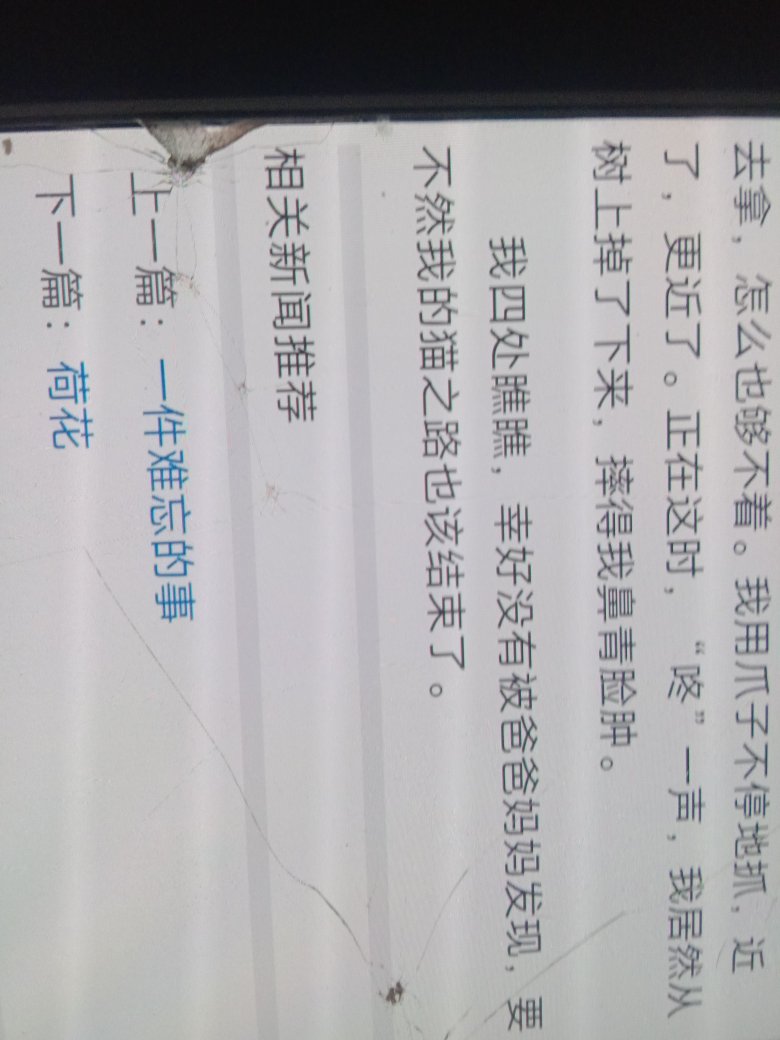 去拿，怎么也够不着。我用爪子不停地抓，近
了，更近了。正在这时，“咚”一声，我居然从
树上掉了下来，摔得我鼻青脸肿。
我四处瞧瞧，幸好没有被爸爸妈妈发现，要
不然我的猫之路也该结束了。
相关新闻推荐
上一篇：一件难忘的事
下一篇：荷花